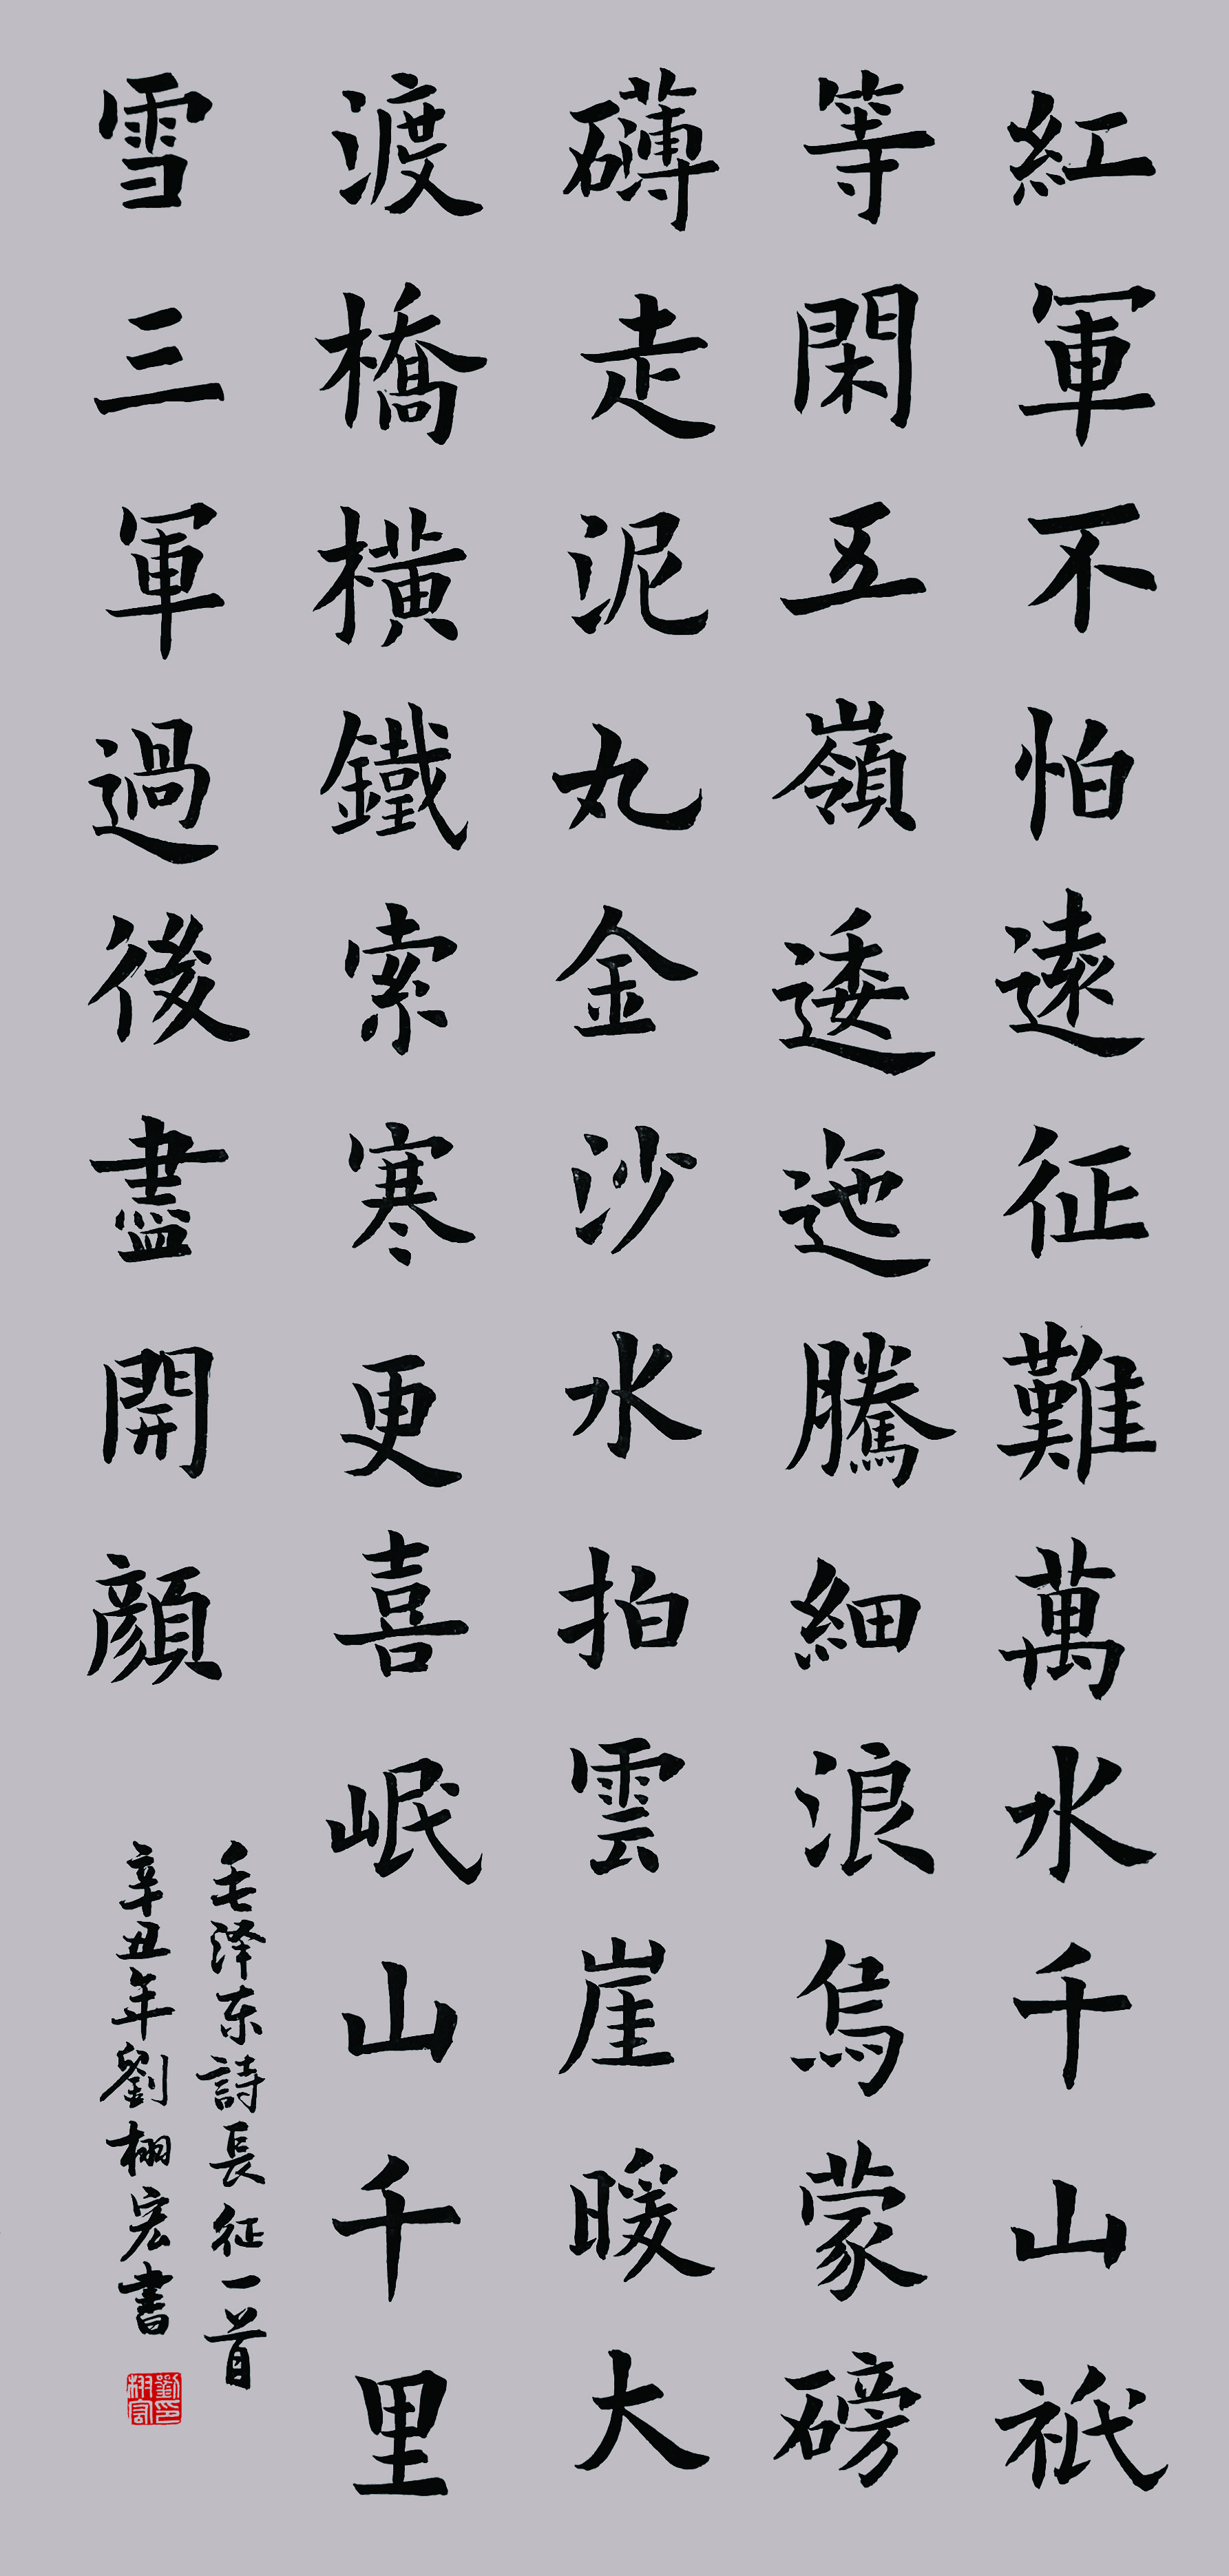 紅軍不怕遠征難萬水千山祇
等閑五嶺逶迤騰細浪烏蒙磅
礴走泥丸金沙水拍雲崖暖大
渡橋橫鐵索寒更喜岷山千里
雪三軍過後盡開顔
毛泽东詩長征一首
辛丑年劉栩宏書
劉栩宏印